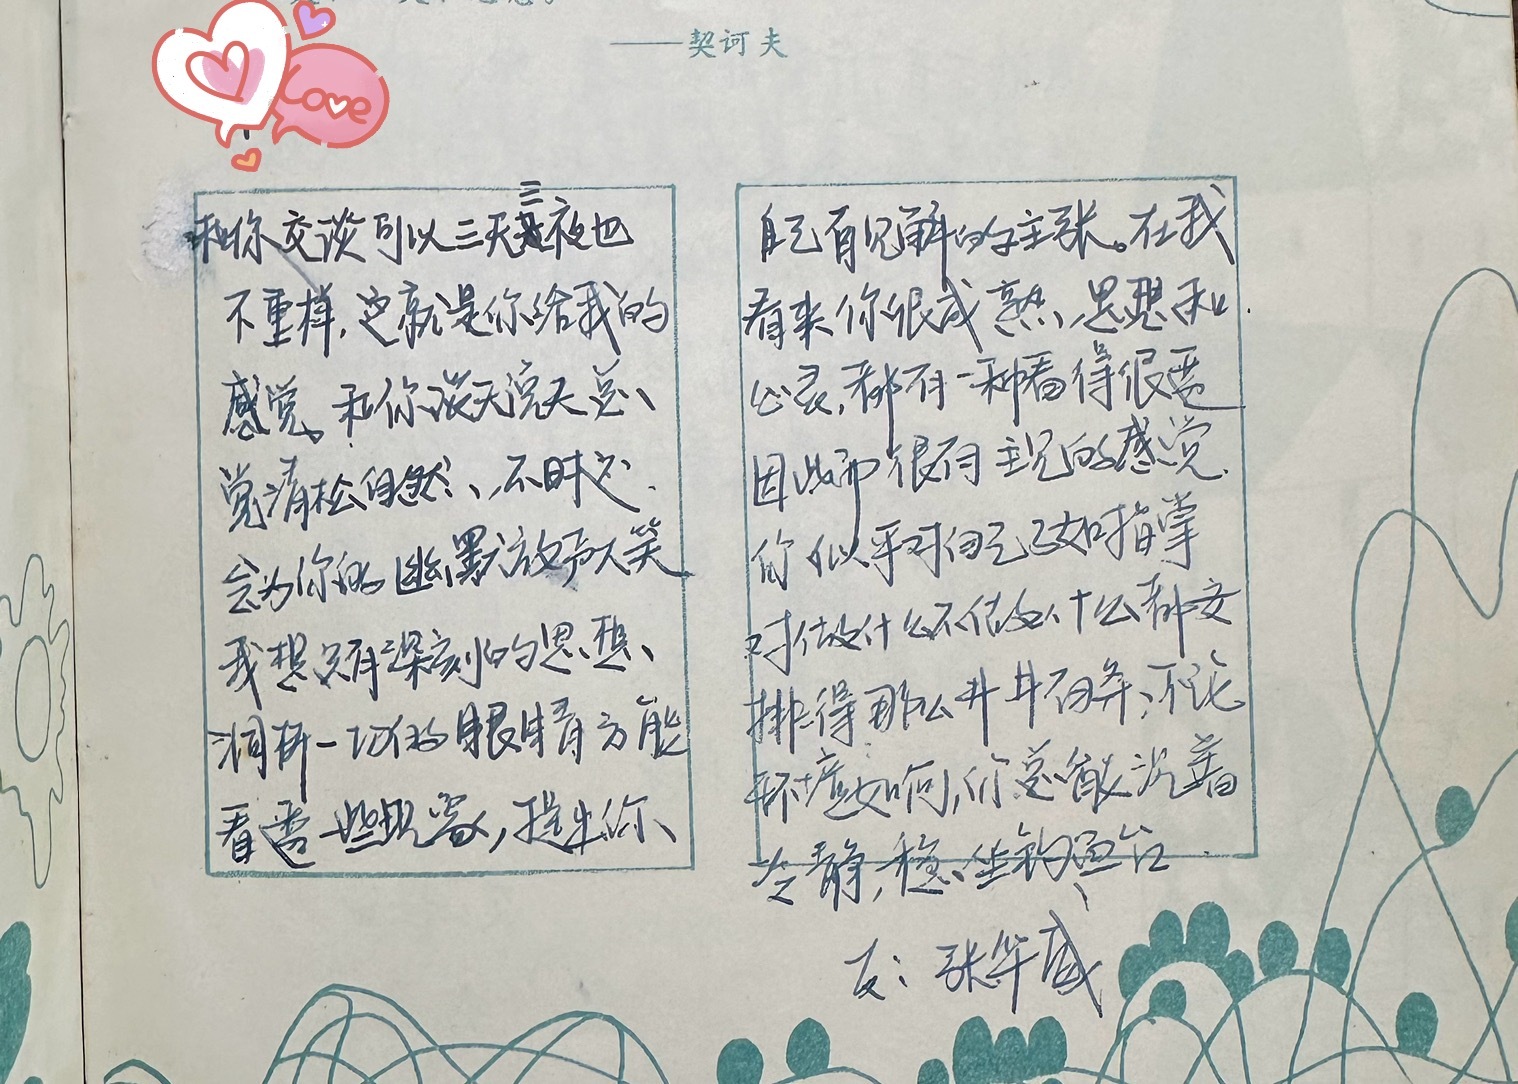 ——契诃夫
Love
和你交谈可以三天三夜也
不重样，这就是你给我的
感觉。和你谈天说天总
觉清松自然、不时之
会为你的幽默放声大笑
我想只有深刻的思想、
洞析一切的眼睛方能
看透一些现象，提出你
自己有见解的主张。在我
看来你很成熟，思想和
必灵，都有一种看得很透
因此而很有主见的感觉.
你似乎对自己了如指掌
对做什么不做什么都安
排得那么井井有条，不论
环境如何，你总能沉着
冷静，稳坐钓鱼台
友：张华威